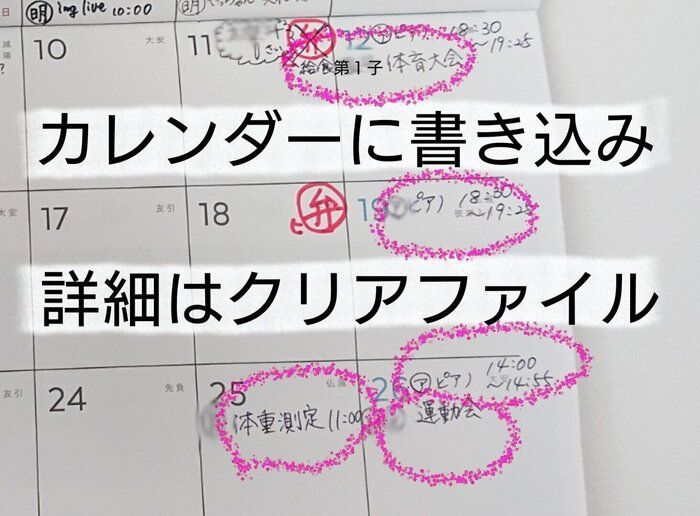 日 明 img live 10:00 明
減
陽
?
10 大安 11 弁 12 ア ピアノ 18:30
〜19:25
給食 第1子 体育大会
カレンダーに書き込み
大安 17 友引 18 弁 19 ア ピアノ 18:30
〜19:25
詳細はクリアファイル
友引 24 先負 25 仏滅 26 ア ピアノ 14:00
〜14:55
体重測定 11:00 運動会